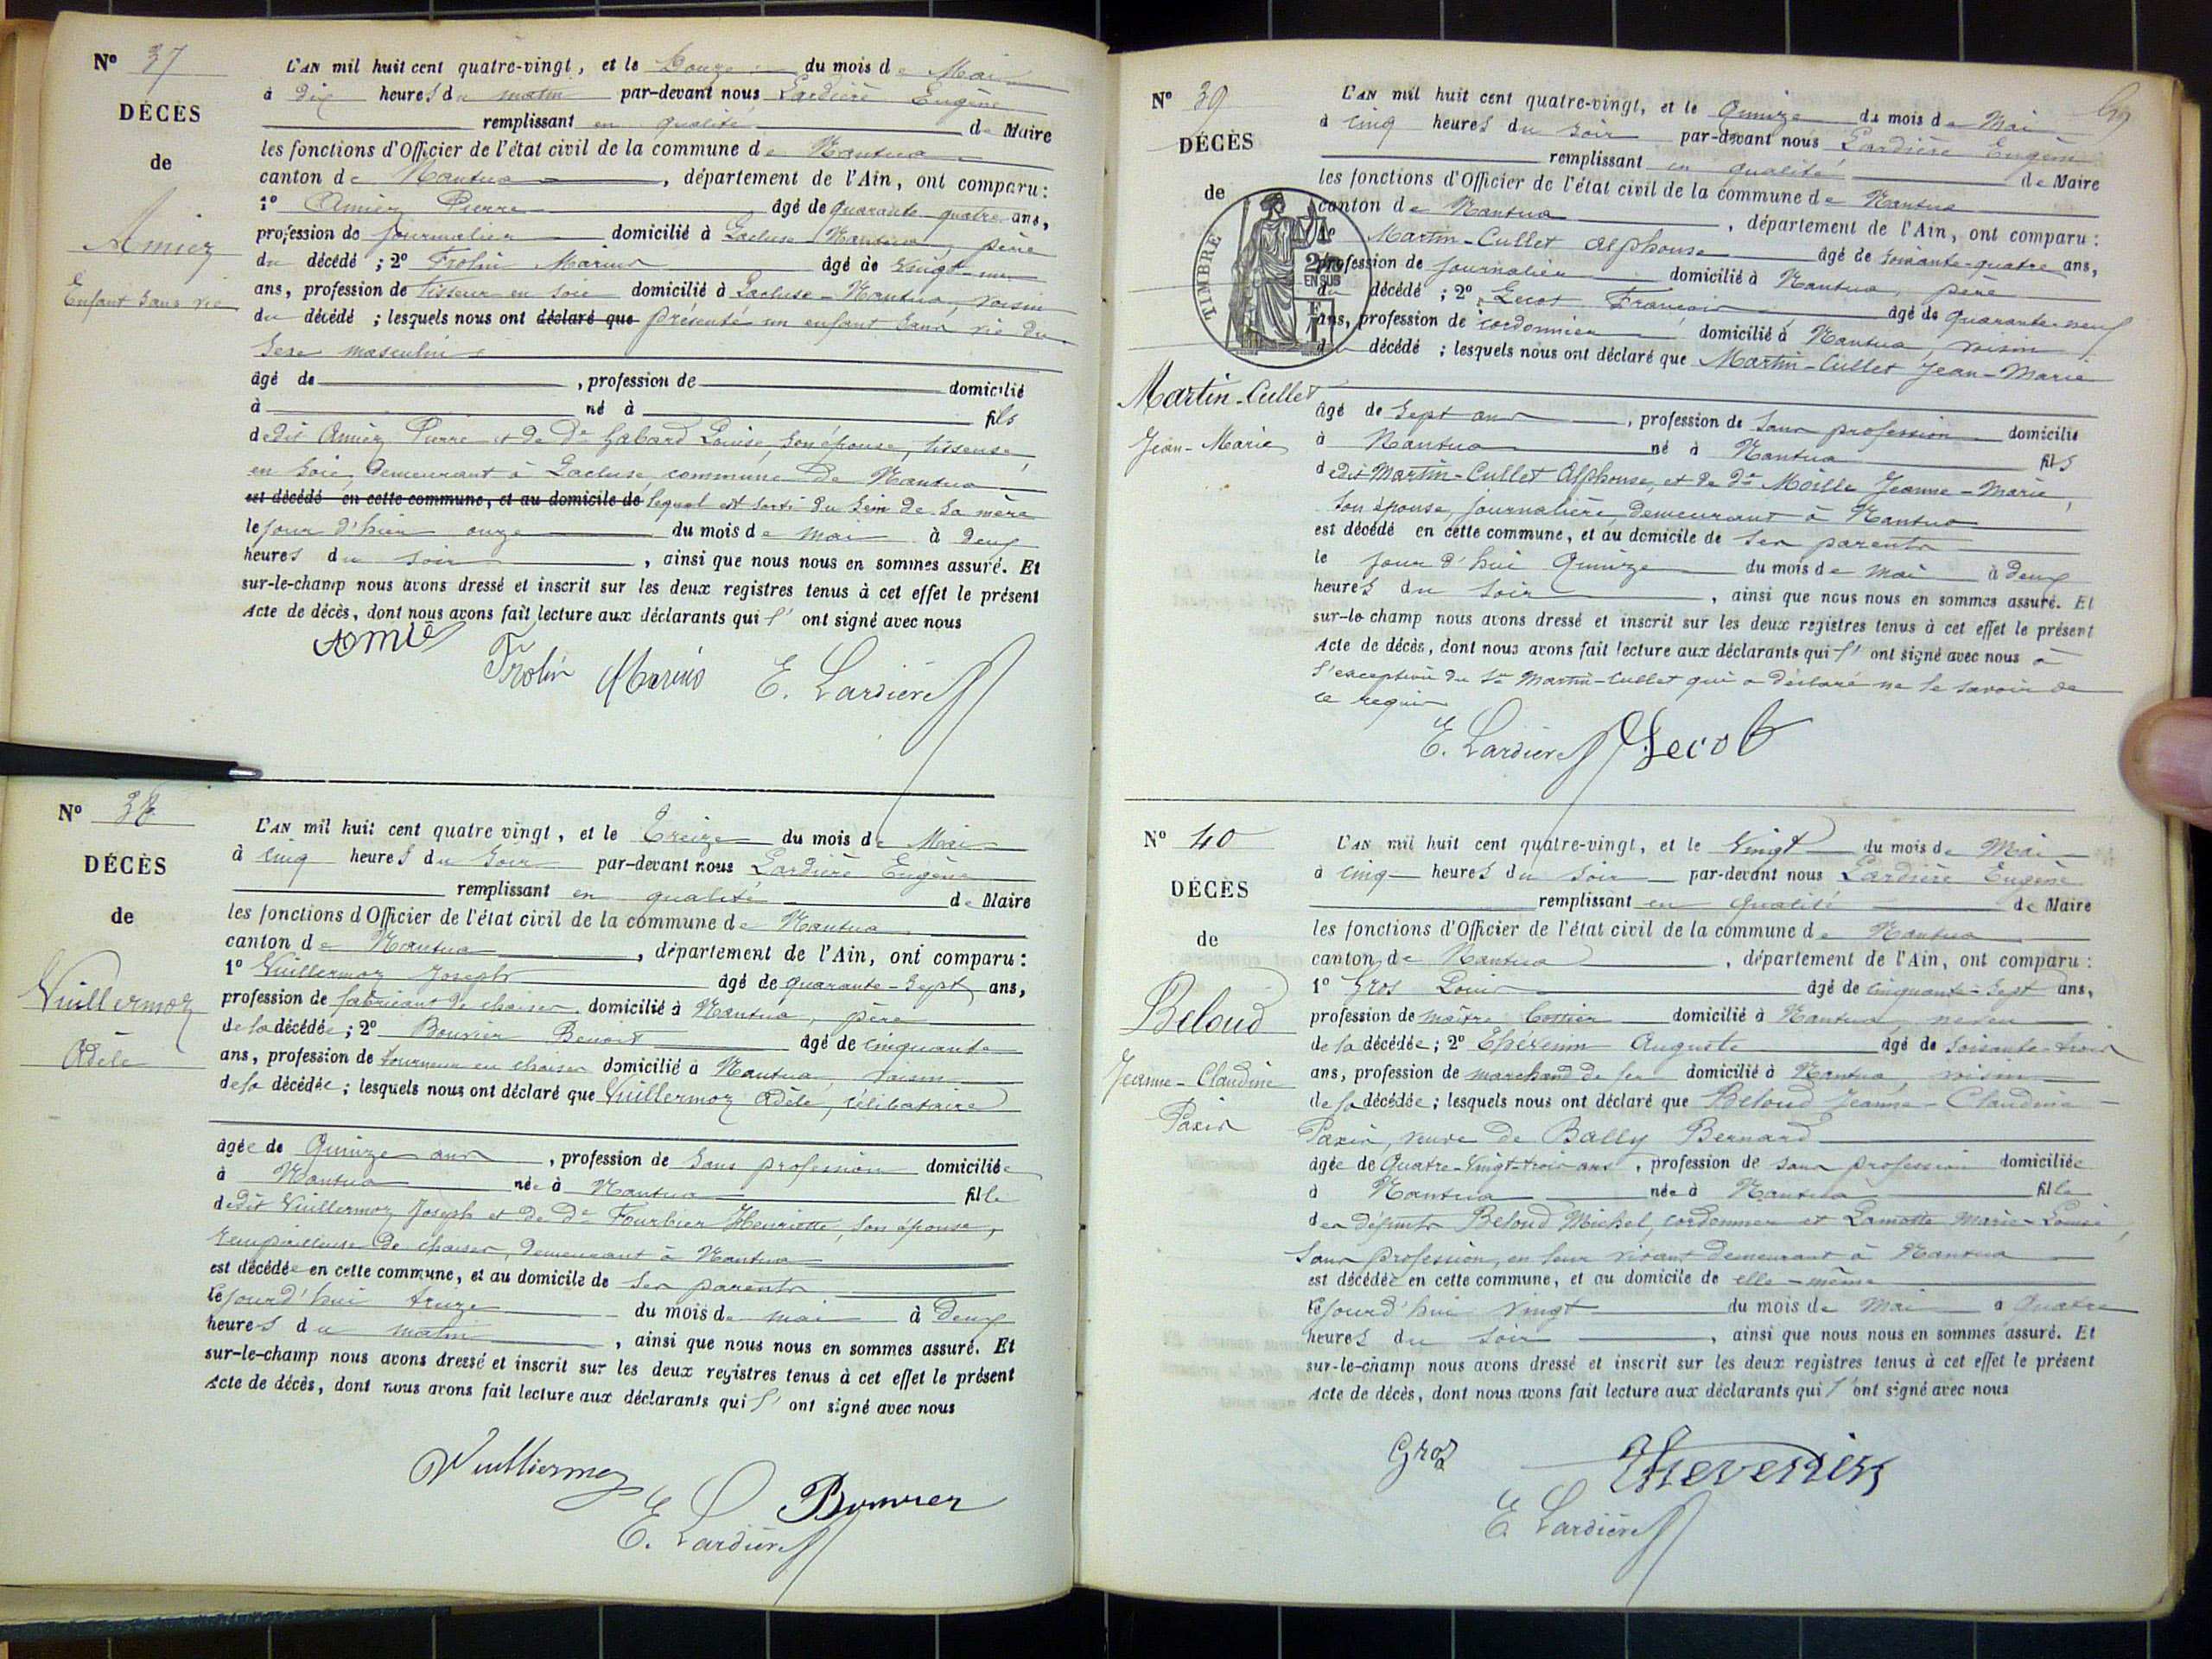 N° 37
DÉCÈS
de
Amiez
Enfant sans vie
L'AN mil huit cent quatre-vingt, et le Douze du mois de Mai
à dix heures du matin par-devant nous Lardière Eugène
remplissant en qualité de Maire
les fonctions d'Officier de l'état civil de la commune de Nantua
canton de Nantua, département de l'Ain, ont comparu:
1° Amiez Pierre âgé de quarante-quatre ans,
profession de journalier domicilié à Lacluse Nantua, père
du décédé ; 2° Frolin Marius âgé de vingt-un
ans, profession de tisseur en soie domicilié à Lacluse-Nantua, voisin
du décédé ; lesquels nous ont déclaré que présenté un enfant sans vie du
sexe masculin
âgé de , profession de domicilié
à né à fils
dedit Amiez Pierre et de De Gabard Louise, son épouse, tisseuse
en soie, demeurant à Lacluse, commune de Nantua
est décédé en cette commune, et au domicile de lequel est sorti du sein de sa mère
le jour d'hier onze du mois de mai à deux
heures du soir, ainsi que nous nous en sommes assuré. Et
sur-le-champ nous avons dressé et inscrit sur les deux registres tenus à cet effet le présent
Acte de décès, dont nous avons fait lecture aux déclarants qui l' ont signé avec nous
Amié
Frolin Marius E. Lardière
N° 38
DÉCÈS
de
Vuillermoz
Adèle
L'AN mil huit cent quatre vingt, et le Treize du mois de Mai
à cinq heures du soir par-devant nous Lardière Eugène
remplissant en qualité de Maire
les fonctions d'Officier de l'état civil de la commune de Nantua
canton de Nantua, département de l'Ain, ont comparu:
1° Vuillermoz Joseph âgé de quarante-sept ans,
profession de fabricant de chaises domicilié à Nantua, père
de la décédée ; 2° Bouvier Benoit âgé de cinquante
ans, profession de tourneur en chaises domicilié à Nantua, voisin
de la décédée ; lesquels nous ont déclaré que Vuillermoz Adèle, célibataire
âgée de Quinze ans, profession de sans profession domiciliée
à Nantua née à Nantua fille
dedit Vuillermoz Joseph et de De Fourbier Henriette, son épouse,
rempailleuse de chaises, demeurant à Nantua
est décédée en cette commune, et au domicile de ses parents
le jourd'hui treize du mois de mai à deux
heures du matin, ainsi que nous nous en sommes assuré. Et
sur-le-champ nous avons dressé et inscrit sur les deux registres tenus à cet effet le présent
Acte de décès, dont nous avons fait lecture aux déclarants qui l' ont signé avec nous
Vuilliermoz
Bouvier
E. Lardière
N° 39
DÉCÈS
de
TIMBRE
2/10
EN SUS
Martin-Cullet
Jean-Marie
L'AN mil huit cent quatre-vingt, et le Quinze du mois de Mai
à cinq heures du soir par-devant nous Lardière Eugène
remplissant en qualité de Maire
les fonctions d'Officier de l'état civil de la commune de Nantua
canton de Nantua, département de l'Ain, ont comparu:
1° Martin-Cullet Alphonse âgé de soixante-quatre ans,
profession de journalier domicilié à Nantua, père
du décédé ; 2° Lecot François âgé de quarante-neuf
ans, profession de cordonnier domicilié à Nantua, voisin
du décédé ; lesquels nous ont déclaré que Martin-Cullet Jean-Marie
âgé de sept ans, profession de sans profession domicilié
à Nantua né à Nantua fils
dedit Martin-Cullet Alphonse, et de De Moille Jeanne-Marie,
son épouse, journalière, demeurant à Nantua
est décédé en cette commune, et au domicile de ses parents
le jour d'hui Quinze du mois de mai à deux
heures du soir, ainsi que nous nous en sommes assuré. Et
sur-le-champ nous avons dressé et inscrit sur les deux registres tenus à cet effet le présent
Acte de décès, dont nous avons fait lecture aux déclarants qui l' ont signé avec nous à
l'exception du Sr Martin-Cullet qui a déclaré ne le savoir de
ce requis
E. Lardière Lecot
N° 40
DÉCÈS
de
Beloud
Jeanne-Claudine
Paxis
L'AN mil huit cent quatre-vingt, et le Vingt du mois de Mai
à cinq heures du soir par-devant nous Lardière Eugène
remplissant en qualité de Maire
les fonctions d'Officier de l'état civil de la commune de Nantua
canton de Nantua, département de l'Ain, ont comparu:
1° Gros Louis âgé de cinquante-sept ans,
profession de maître bottier domicilié à Nantua, neveu
de la décédée ; 2° Thévenin Auguste âgé de soixante-trois
ans, profession de marchand de fer domicilié à Nantua, voisin
de la décédée ; lesquels nous ont déclaré que Beloud Jeanne-Claudine
Paxis, veuve de Bally Bernard
âgée de Quatre-vingt-trois ans, profession de sans profession domiciliée
à Nantua née à Nantua fille
des défunts Beloud Michel, cordonnier et Lamotte Marie-Louise,
sans profession, en leur vivant demeurant à Nantua
est décédée en cette commune, et au domicile de elle-même
le jourd'hui vingt du mois de mai à quatre
heures du soir, ainsi que nous nous en sommes assuré. Et
sur-le-champ nous avons dressé et inscrit sur les deux registres tenus à cet effet le présent
Acte de décès, dont nous avons fait lecture aux déclarants qui l' ont signé avec nous
Gros Thevenin
E. Lardière